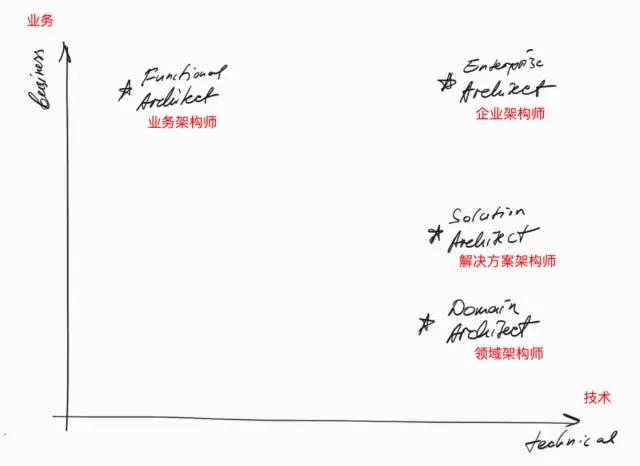 业务
Business
Functional
Architect
业务架构师
Enterprise
Architect
企业架构师
Solution
Architect
解决方案架构师
Domain
Architect
领域架构师
技术
technical